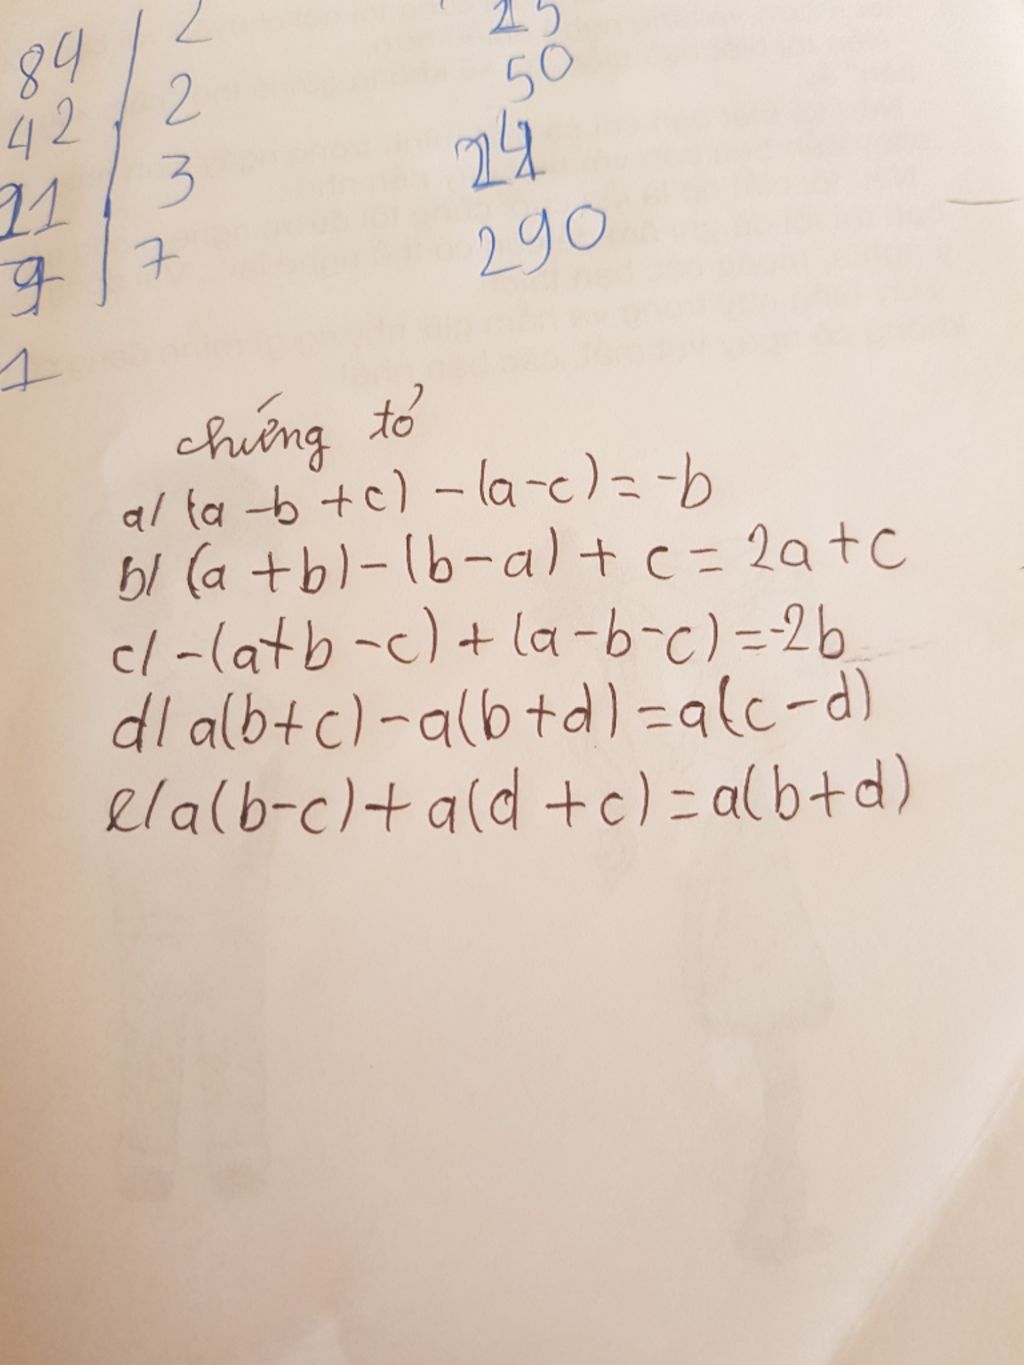 84 | 2
42 | 2
21 | 3
7 | 7
1
25
50
24
290
chứng tỏ
a/ (a - b + c) - (a - c) = -b
b/ (a + b) - (b - a) + c = 2a + c
c/ -(a + b - c) + (a - b - c) = -2b
d/ a(b + c) - a(b + d) = a(c - d)
e/ a(b - c) + a(d + c) = a(b + d)